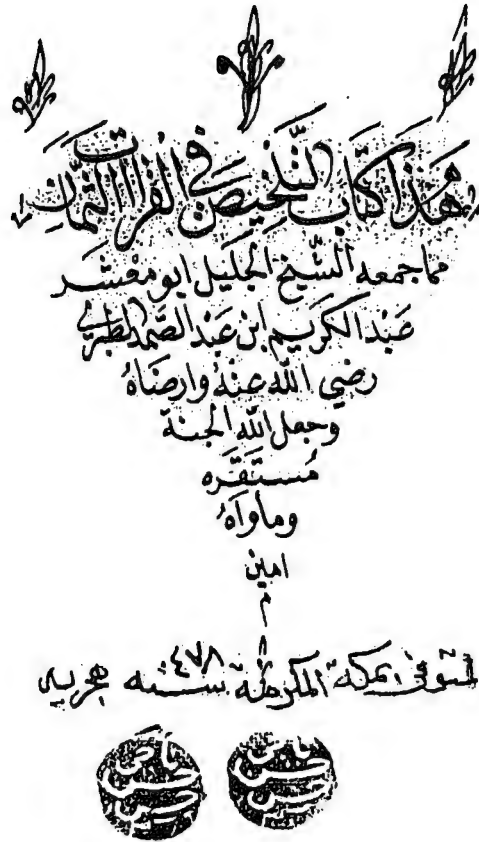 هذا كتاب التلخيص في القراات الثمان
مما جمعه الشيخ الجليل ابو معشر
عبد الكريم ابن عبد الصمد الطبري
رضي الله عنه وارضاه
وجعل الله الجنة
مُستقره
وماواه
امين
م
المتوفى بمكة المكرمة سنه ٤٧٨ هجريه